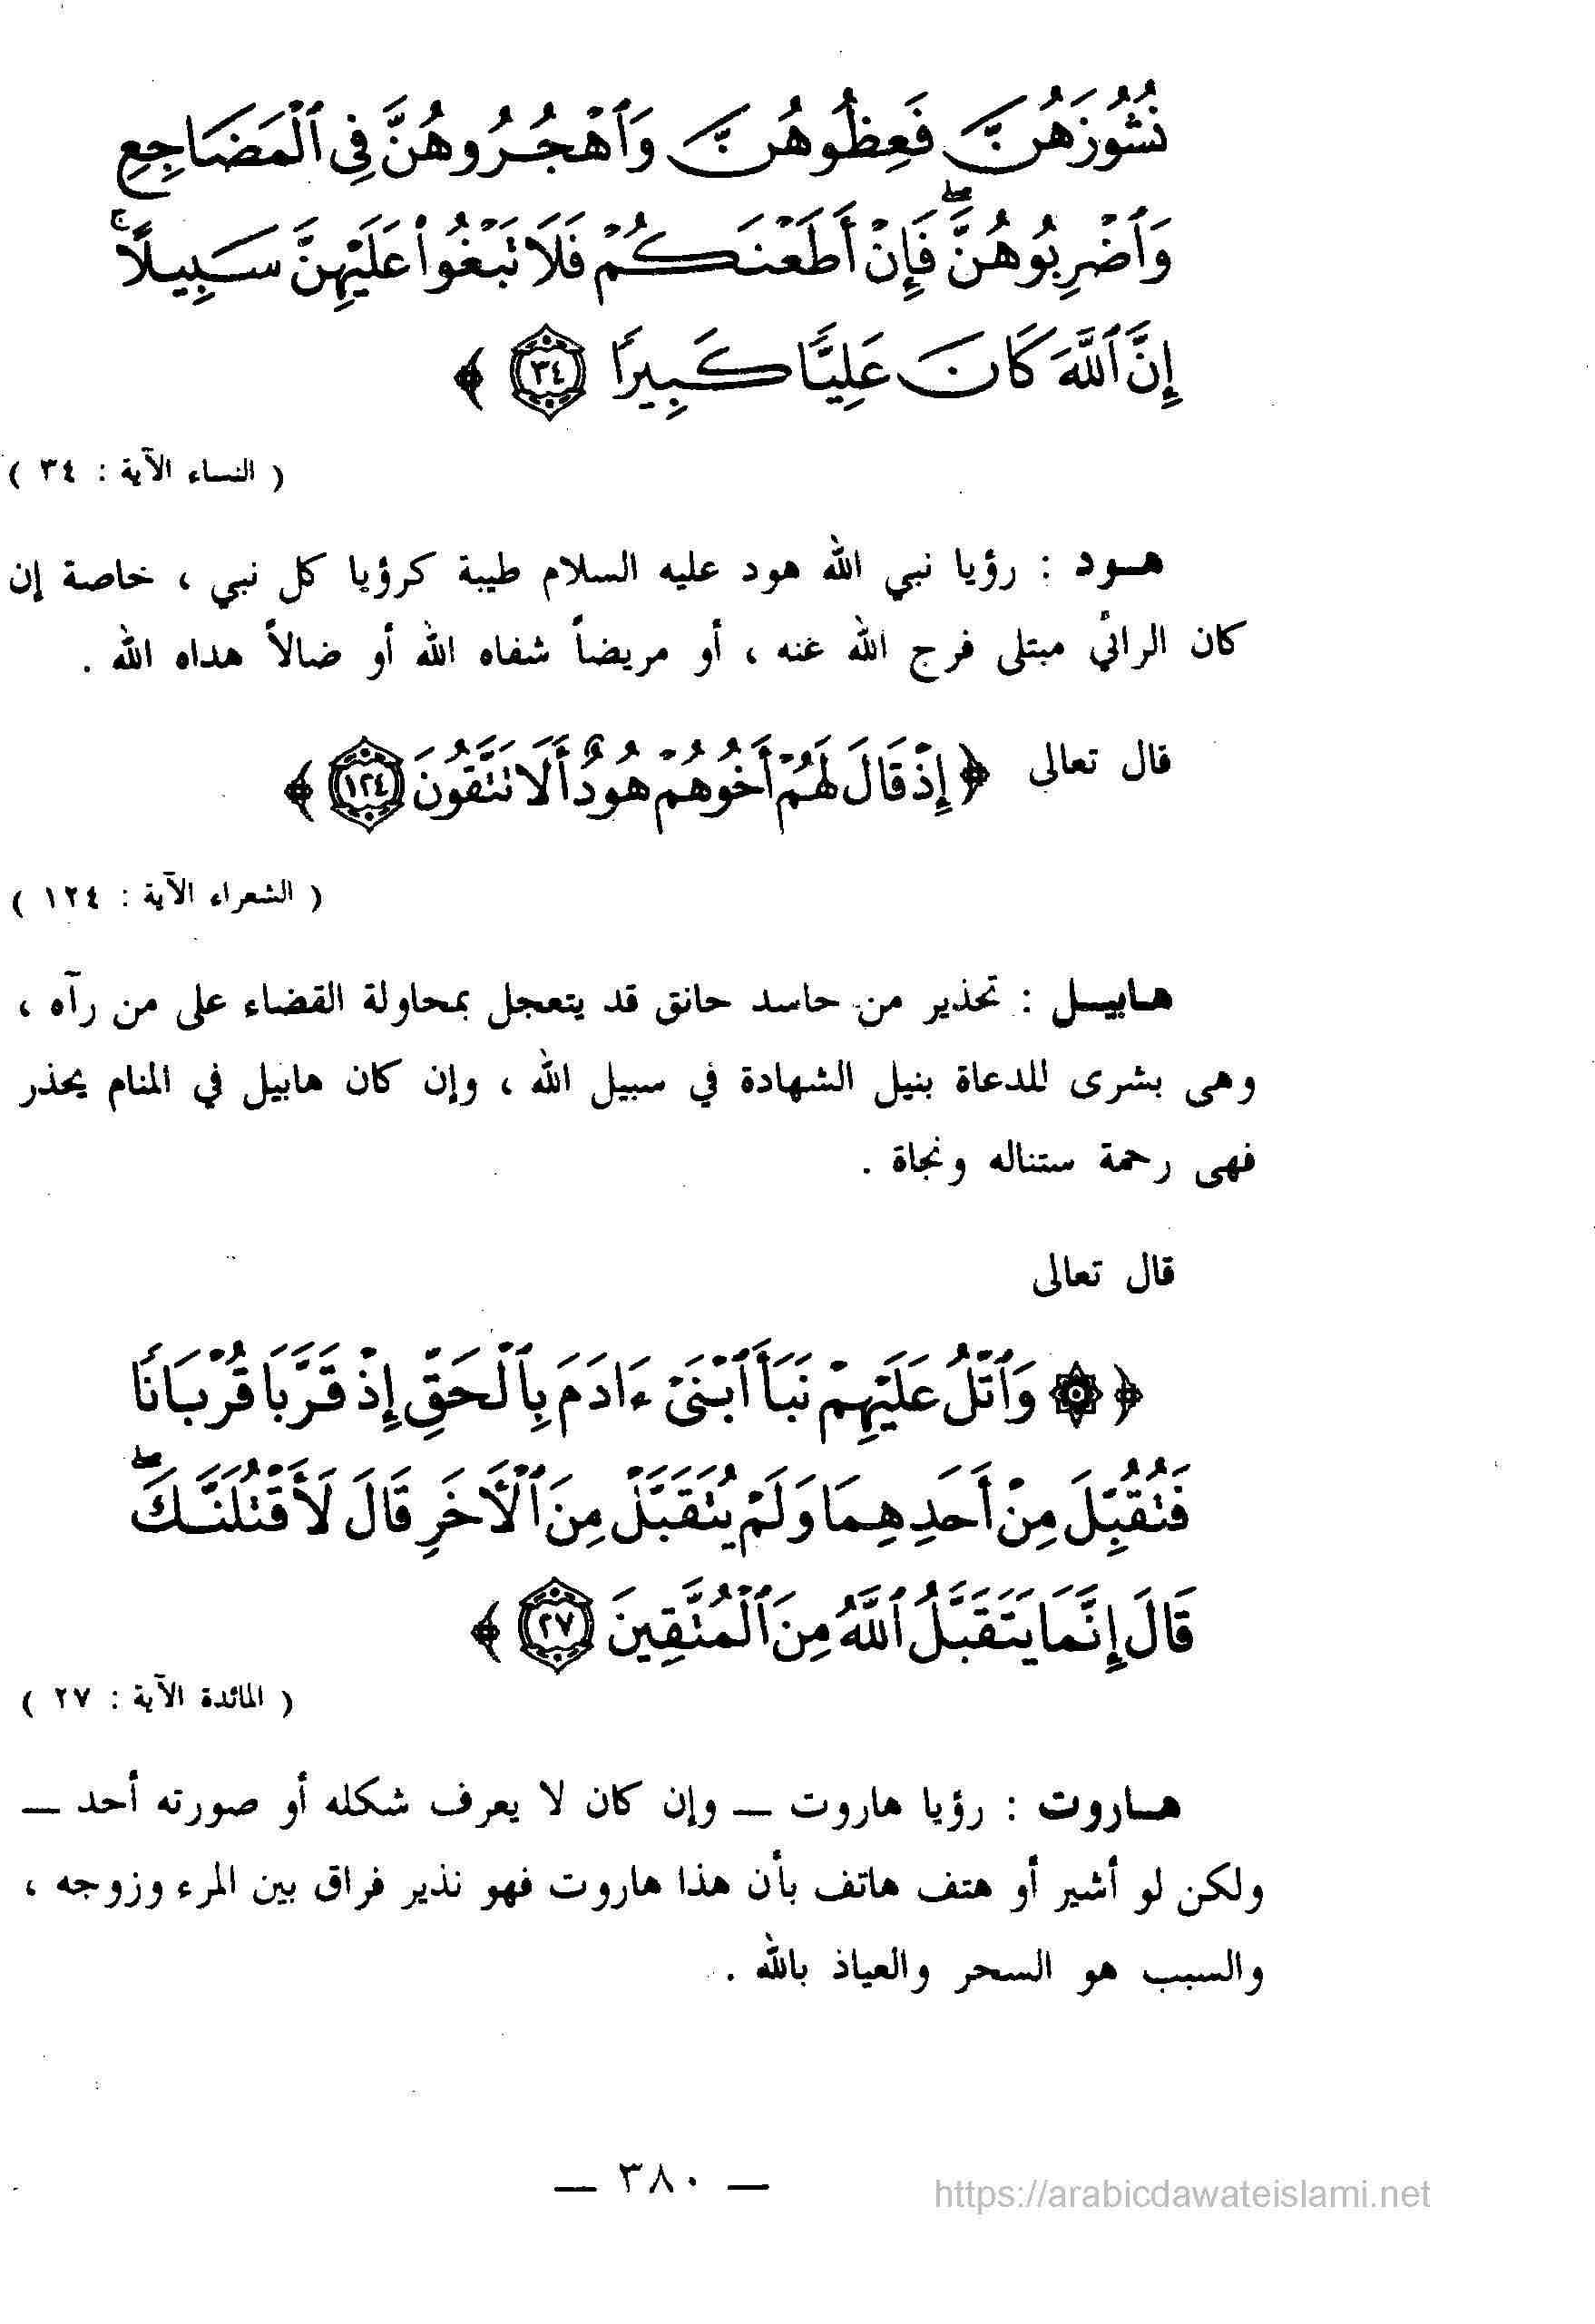 نُشُوزَهُنَّ فَعِظُوهُنَّ وَٱهۡجُرُوهُنَّ فِى ٱلۡمَضَاجِعِ
وَٱضۡرِبُوهُنَّۖ فَإِنۡ أَطَعۡنَكُمۡ فَلَا تَبۡغُواْ عَلَيۡهِنَّ سَبِيلًاۚ
إِنَّ ٱللَّهَ كَانَ عَلِيًّا كَبِيرًا ٣٤ ﴾
( النساء الآية : ٣٤ )
هـود : رؤيا نبي الله هود عليه السلام طيبة كرؤيا كل نبي ، خاصة إن
كان الرائي مبتلى فرج الله عنه ، أو مريضاً شفاه الله أو ضالاً هداه الله .
قال تعالى ﴿ إِذۡ قَالَ لَهُمۡ أَخُوهُمۡ هُودٌ أَلَا تَتَّقُونَ ١٢٤ ﴾
( الشعراء الآية : ١٢٤ )
هـابيـل : تحذير من حاسد حانق قد يتعجل بمحاولة القضاء على من رآه ،
وهى بشرى للدعاة بنيل الشهادة في سبيل الله ، وإن كان هابيل في المنام يحذر
فهى رحمة ستناله ونجاة .
قال تعالى
﴿ ۞ وَٱتۡلُ عَلَيۡهِمۡ نَبَأَ ٱبۡنَىۡ ءَادَمَ بِٱلۡحَقِّ إِذۡ قَرَّبَا قُرۡبَانًا
فَتُقُبِّلَ مِنۡ أَحَدِهِمَا وَلَمۡ يُتَقَبَّلۡ مِنَ ٱلۡأَخَرِ قَالَ لَأَقۡتُلَنَّكَۖ
قَالَ إِنَّمَا يَتَقَبَّلُ ٱللَّهُ مِنَ ٱلۡمُتَّقِينَ ٢٧ ﴾
( المائدة الآية : ٢٧ )
هـاروت : رؤيا هاروت — وإن كان لا يعرف شكله أو صورته أحد —
ولكن لو أشير أو هتف هاتف بأن هذا هاروت فهو نذير فراق بين المرء وزوجه ،
والسبب هو السحر والعياذ بالله .
— ٣٨٠ —
https://arabicdawateislami.net